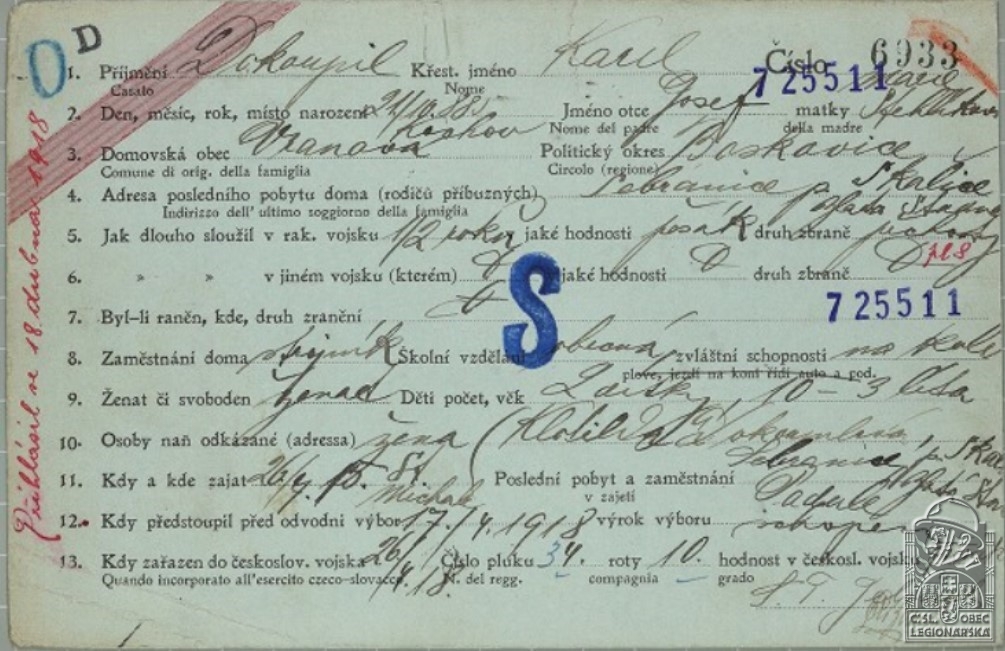 D
Číslo 6933
725511
1. Příjmení Dokoupil Křest. jméno Karel
Casato Nome
2. Den, měsíc, rok, místo narození Jméno otce Josef matky
Nome del padre della madre
3. Domovská obec Vranová Politický okres Boskovice
Comune di orig. della famiglia Circolo (regione)
4. Adresa posledního pobytu doma (rodičů příbuzných) Sebranice p. Skalice
Indirizzo dell' ultimo soggiorno della famiglia
5. Jak dlouho sloužil v rak. vojsku 1/2 roku jaké hodnosti pěšák druh zbraně pěchoty
6. » » v jiném vojsku (kterém) jaké hodnosti druh zbraně
S
725511
7. Byl-li raněn, kde, druh zranění
8. Zaměstnání doma strojník Školní vzdělání obecná zvláštní schopnosti na kole
plove, jezdí na koni řídí auto a pod.
9. Ženat či svoboden ženat Děti počet, věk 2 dívky 10 – 3 léta
10. Osoby naň odkázané (adressa) žena (Klotilda Dokoupilová
Sebranice, p. Skalice
11. Kdy a kde zajat St. Michael Poslední pobyt a zaměstnání
v zajetí Padule
12. Kdy předstoupil před odvodní výbor 17./4. 1918 výrok výboru schopen
13. Kdy zařazen do českoslov. vojska 26/4. 18. Číslo pluku 34 roty 10. hodnost v českosl. vojsku
Quando incorporato all'esercito czeco-slovacco N. del regg. compagnia grado
Přihlásil se 18. dubna 1918
ČSL. OBEC
LEGIONÁŘSKÁ